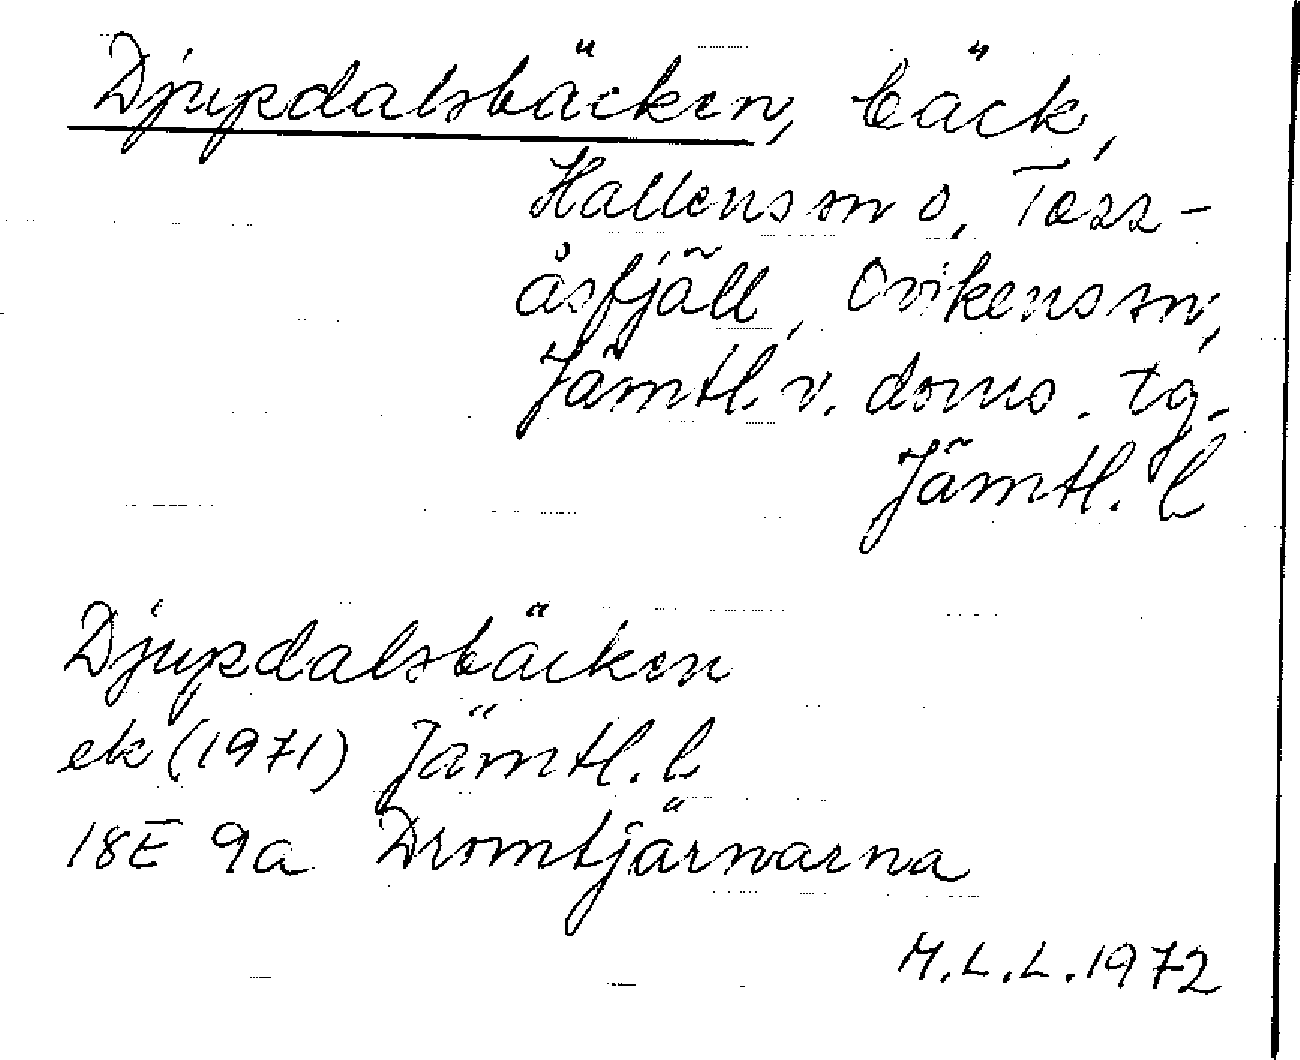 Djupdalsbäcken, bäck,
Hallens sn o, Tass-
åsfjäll, Ovikens sn,
Jämtl. v. doms. tg.
Jämtl. l
Djupdalsbäcken
ek (1971) Jämtl. l
18E 9a Dromtjärnarna
M.L.L. 1972